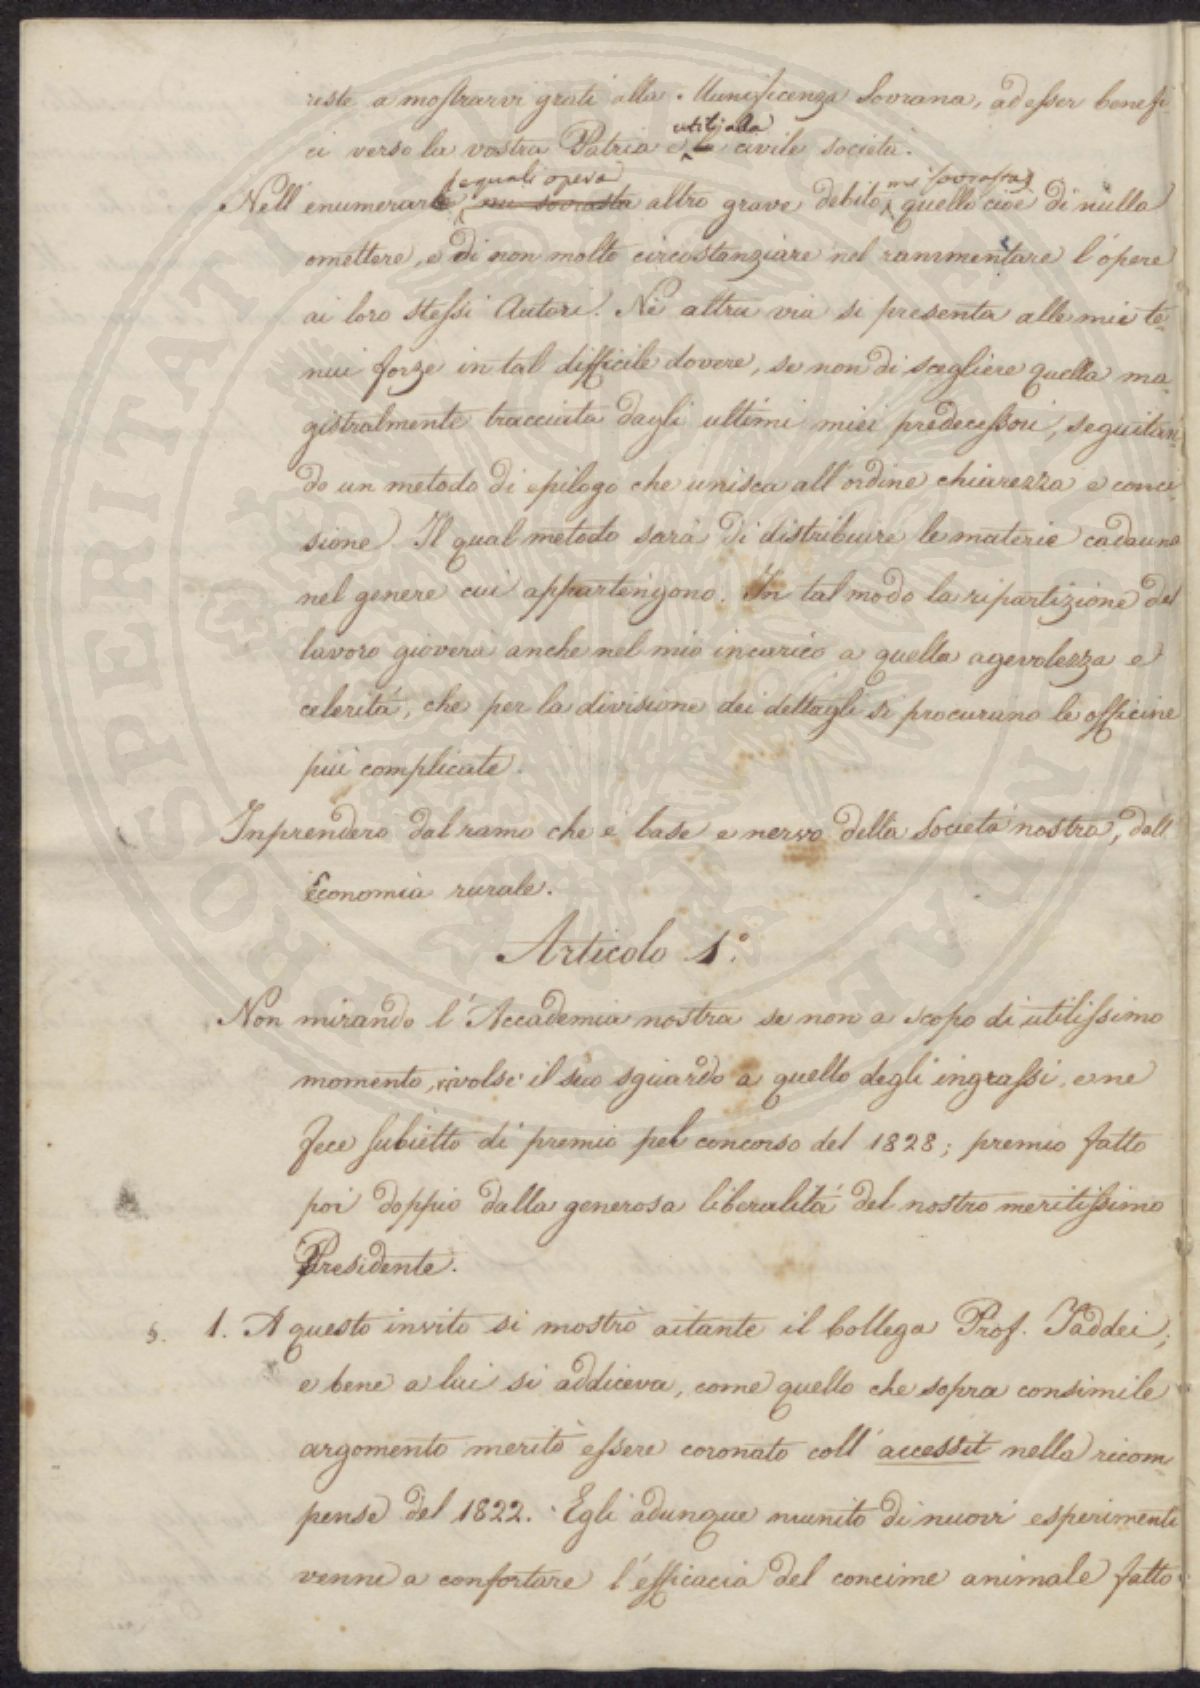 riste a mostrarvi grati alla Munificenza Sovrana, ad esser benefi-
ci verso la vostra Patria e utili alla civile società.
Nell'enumerare quali opere mi sovrasta altro grave debito mi sovrasta, quello cioè di nulla
omettere, e di non molto circostanziare nel rammentare l'opere
ai loro stessi Autori. Nè altra via si presenta alle mie te-
nui forze in tal difficile dovere, se non di scegliere quella ma-
gistralmente tracciata dagli ultimi miei predecessori, seguitan-
do un metodo di epilogo che unisca all'ordine chiarezza e conci-
sione. Il qual metodo sarà di distribuire le materie cadauna
nel genere cui appartengono. In tal modo la ripartizione del
lavoro gioverà anche nel mio incarico a quella agevolezza e
celerità, che per la divisione dei dettagli si procurano le officine
più complicate.
Inprenderò dal ramo che è base e nervo della Società nostra, dall'
Economia rurale.
Articolo 1.°
Non mirando l'Accademia nostra se non a scopo di utilissimo
momento, rivolse il suo sguardo a quello degli ingrassi, e ne
fece subietto di premio pel concorso del 1828; premio fatto
poi doppio dalla generosa liberalità del nostro meritissimo
Presidente.
§. 1. A questo invito si mostrò aitante il Collega Prof. Taddei;
e bene a lui si addiceva, come quello che sopra consimile
argomento meritò essere coronato coll'accessit nella ricom-
pense del 1822. Egli adunque munito di nuovi esperimenti
venne a confortare l'efficacia del concime animale fatto
PROSPERITATI AUGENDAE